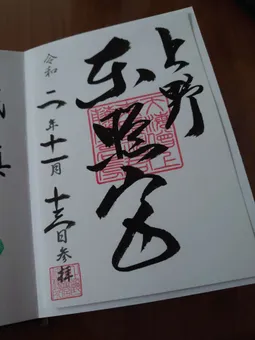 上野
東照宮
令和二年十一月十三日参拝